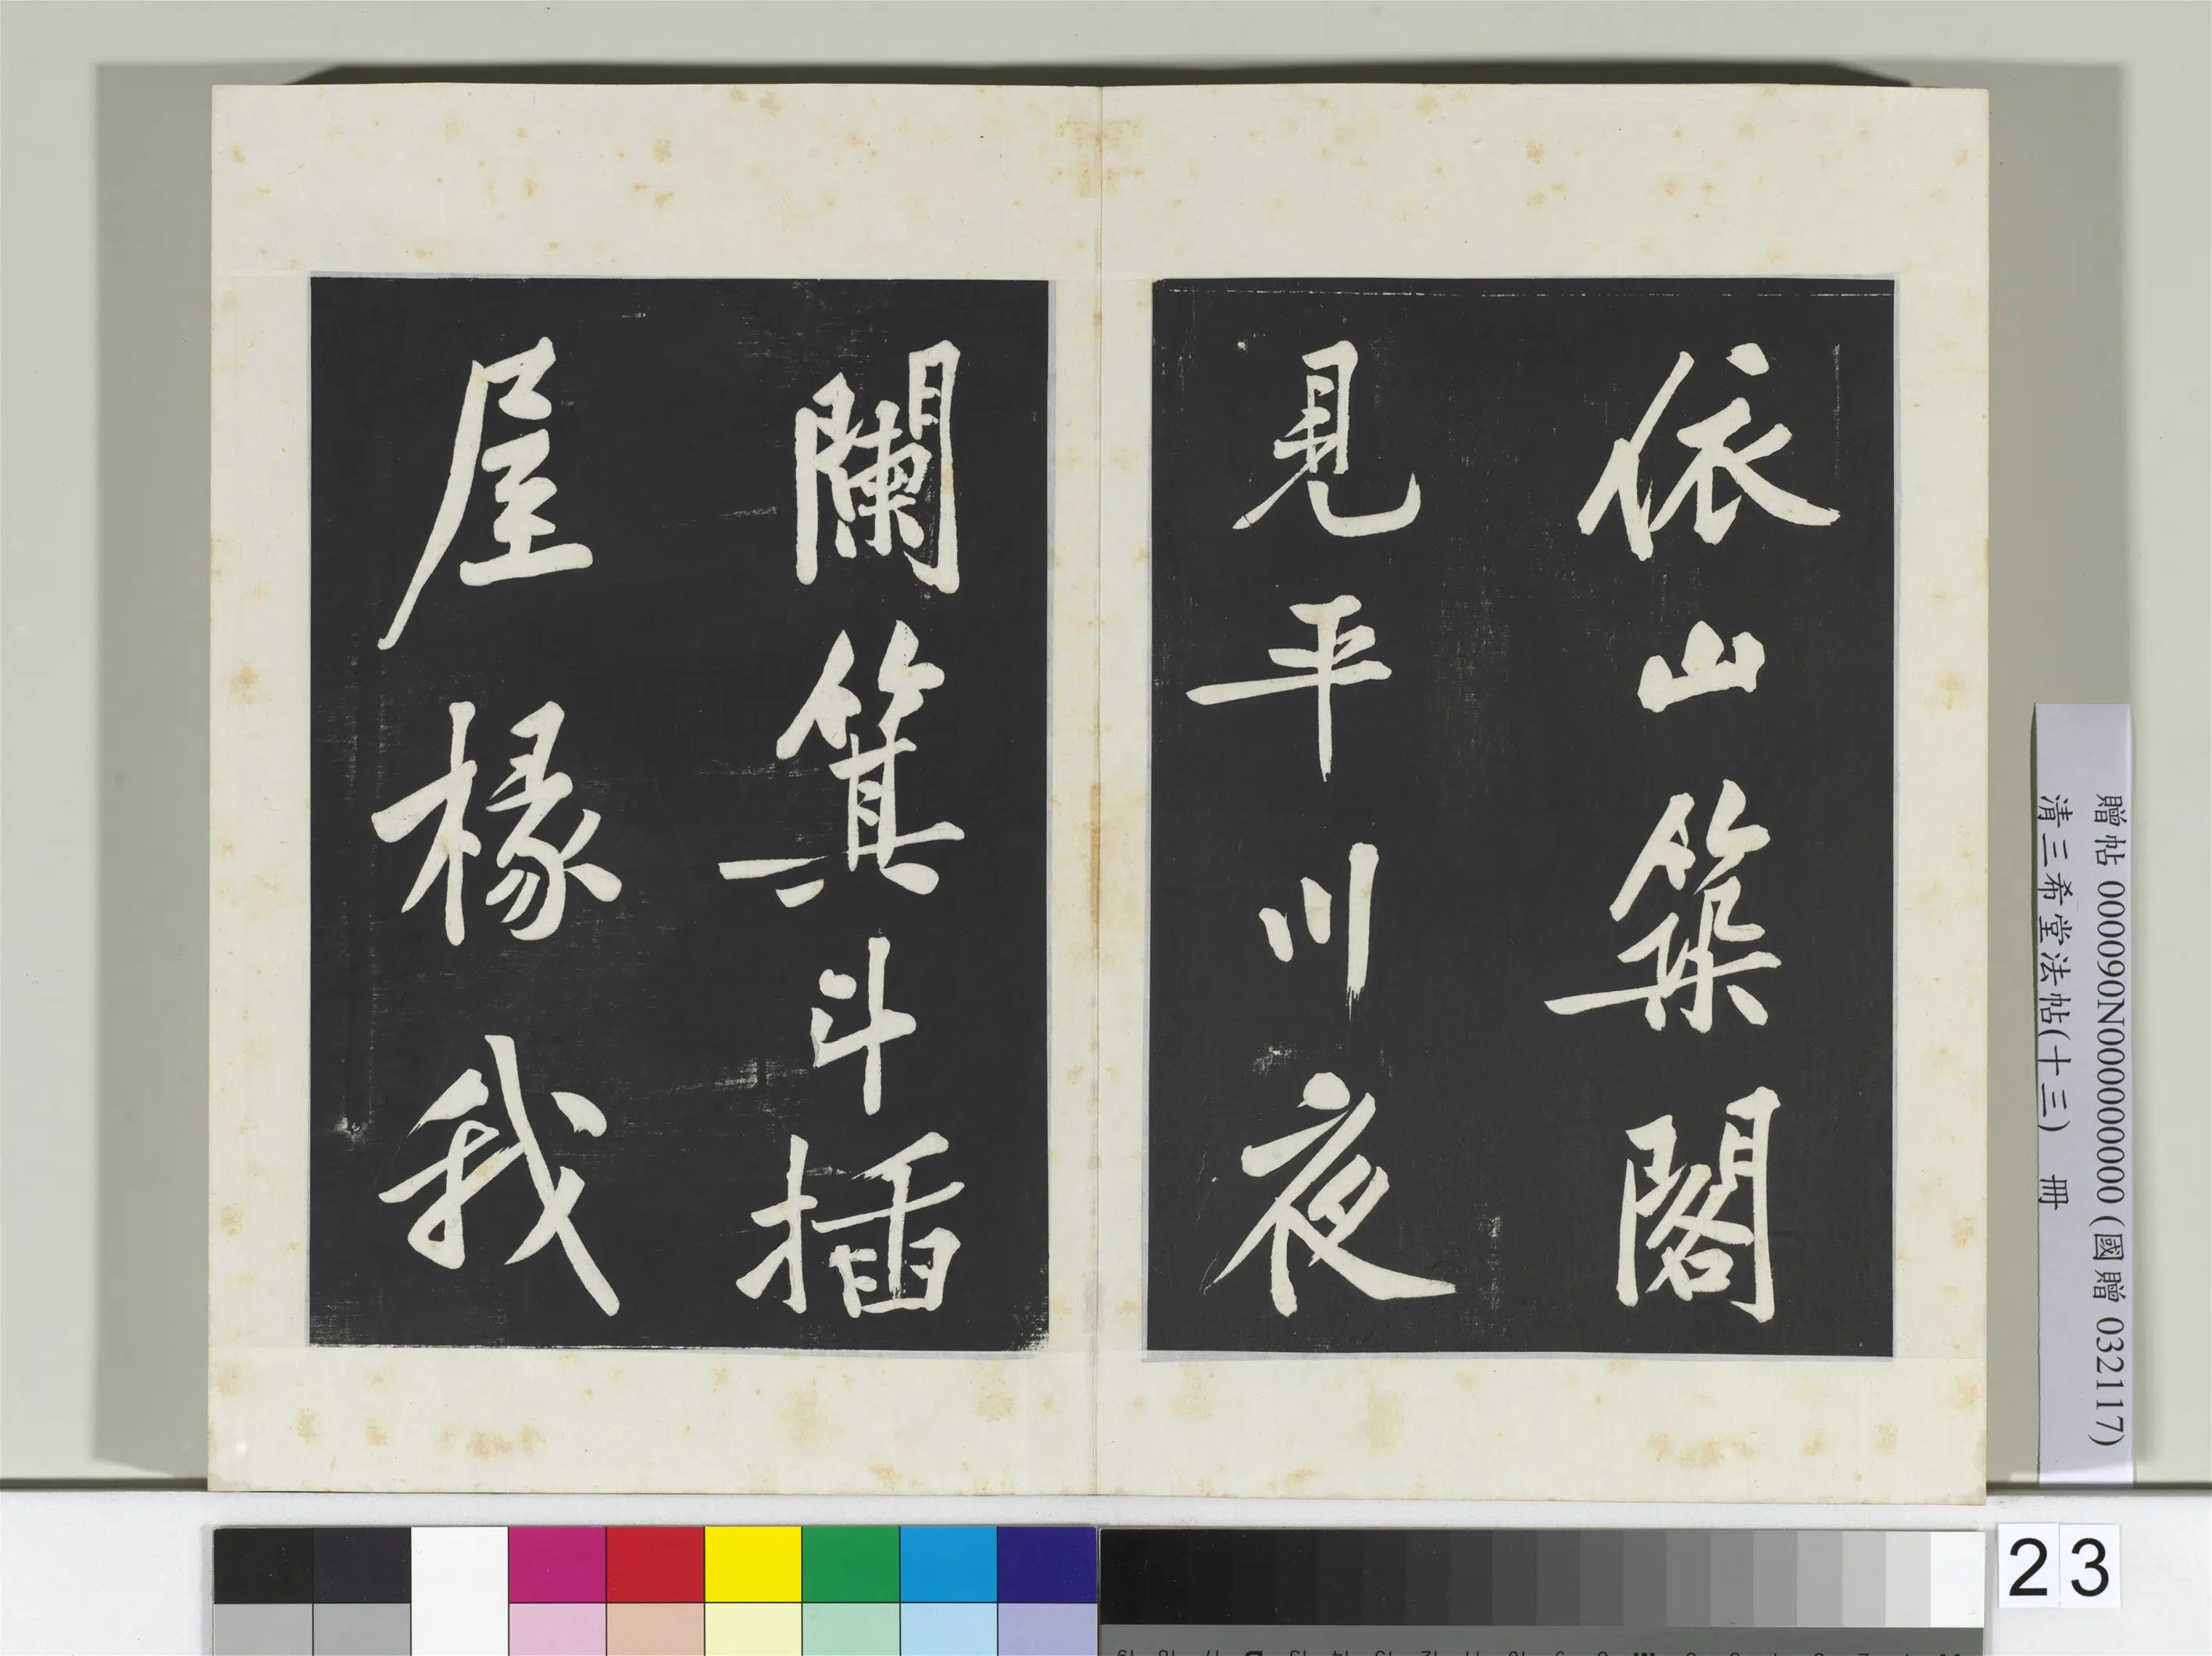 依山築閣
見平川夜
闌箕斗插
屋椽我
贈帖 000090N000000000 (國贈 032117)
清三希堂法帖(十三) 冊
23